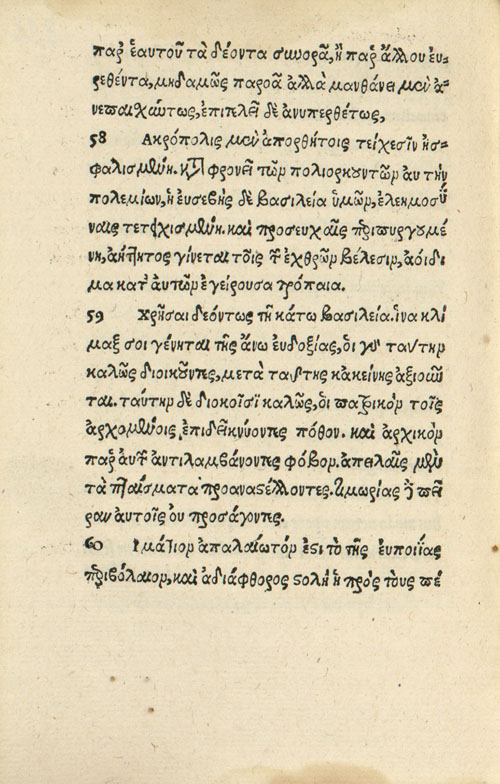 παρ ἑαυτοῦ τὰ δέοντα συνορᾶ, ἢ παρ ἄλλου εὑ-
ρεθέντα, μηδαμῶς παρορᾶ ἀλλὰ μανθάνει μὲν ἀ-
νεπαισχύντως, ἐπιτελεῖ δὲ ἀνυπερθέτως,
58 Ακρόπολις μὲν ἀπορθήτοις τείχεσϊν ἠσ-
φαλισμένη. καταφρονεῖ τῶν πολιορκούντων αυτὴν
πολεμίων, ἡ ευσεβὴς δὲ βασιλεία ὑμῶν, ἐλεημοσύ
ναις τετειχισμένη. καὶ προσευχαῖς περιπυργουμέ
νη, ἀήττητος γίνεται τοῖς τῶν ἐχθρῶν βέλεσιν, ἀοιδι
μα κατ αυτῶν ἐγείρουσα τρόπαια.
59 Χρῆσαι δεόντως τῇ κάτω βασιλεία. ἵνα κλί
μαξ σοι γένηται τῆς ἄνω ευδοξίας, ὁι γὰρ ταύτην
καλῶς διοικοῦντες, μετὰ ταύτης κἀκείνης ἀξιοῦν
ται. ταύτην δὲ διοικοῖσϊ καλῶς, ὁι πατρικὸν τοῖς
ἀρχομένοις ἐπιδεικνύοντες πόθον. καὶ ἀρχικὸν
παρ αυτῶν ἀντιλαμβάνοντες φόβον. ἀπειλαῖς μὲν
τὰ πταίσματα προαναστέλλοντες. τιμωρίας δὲ πεῖ
ραν αυτοῖς ὀυ προσάγοντες.
60 Ιμάτιον ἀπαλαίωτόν ἐστι τὸ τῆς ἐυποιΐας
περιβόλαιον, καὶ ἀδιάφθορος στολὴ ἡ πρὸς τοὺς πέ